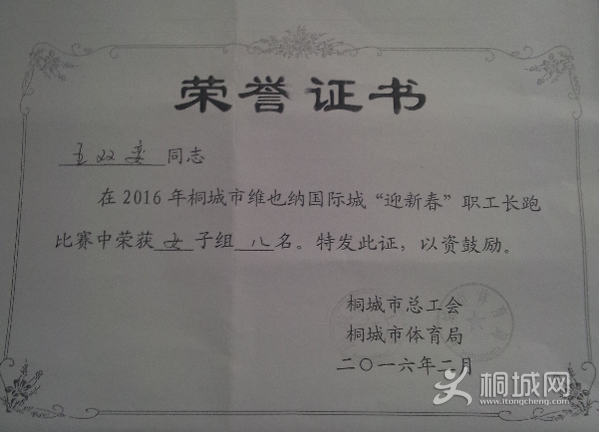 荣誉证书
王双 同志
在2016年桐城市维也纳国际城“迎新春”职工长跑
比赛中荣获 女 子组 八 名。特发此证，以资鼓励。
桐城市总工会
桐城市体育局
二〇一六年二月
桐城网
www.itongcheng.com